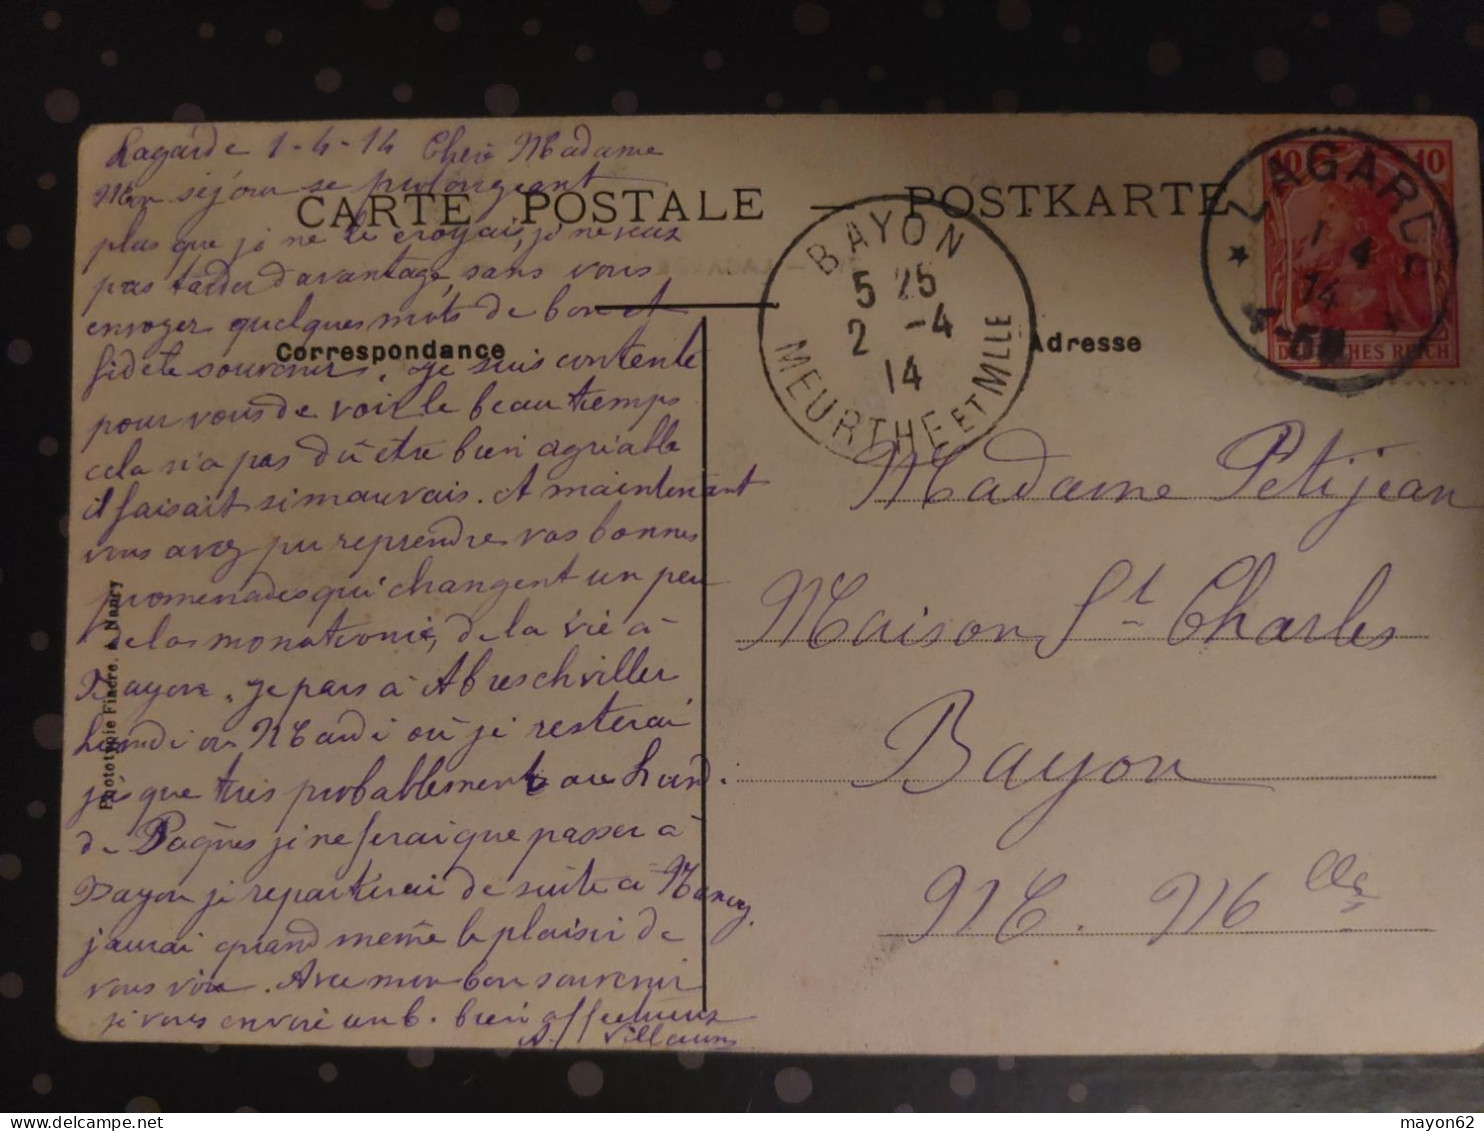 Lagarde 1-4-14 Chère Madame
Mon séjour se prolongeant
CARTE POSTALE — POSTKARTE
plus que je ne le croyais, je ne veux
pas tarder davantage, sans vous
envoyer quelques mots de bon et
Correspondance
Adresse
fidèle souvenir. Je suis contente
pour vous de voir le beau temps
cela n'a pas dû être bien agriable
il faisait si mauvais. Et maintenant
vous avez pu reprendre vos bonnes
promenades qui changent un peu
de la monotonie, de la vie à
Bayon. Je pars à Abreschviller
Lundi ou Mardi où je resterai
jusque très probablement au Lundi
de Pâques je ne ferai que passer à
Bayon je repartirai de suite à Nancy.
j'aurai quand même le plaisir de
vous voir. Avec mon bon souvenir
je vous envoie un b. bien affectueux
A. Villaum
Phototypie Fiacre. A Nancy
BAYON
5 25
2 -4
14
MEURTHE ET MLLE
LAGARDE
1 4
14
4-5N
10 10
DEUTSCHES REICH
Madame Petijean
Maison St Charles
Bayon
M. Mlle
mayon62